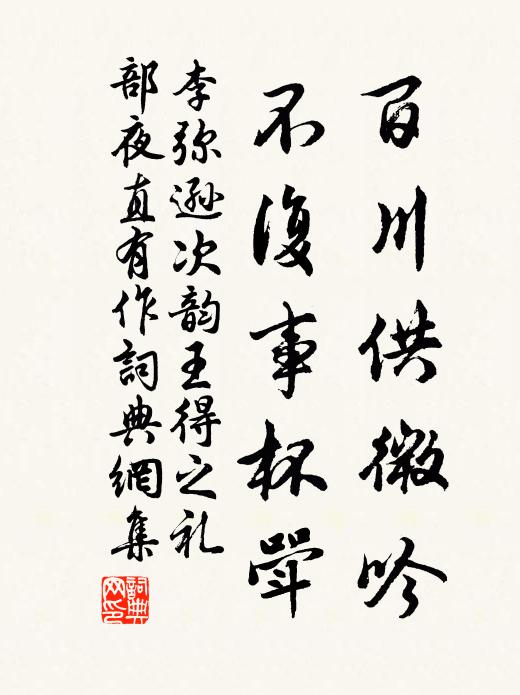 百川供微吟
不復事杯斝
李弥遜次韵王得之礼
部夜直有作詞典網集
詞典
网印